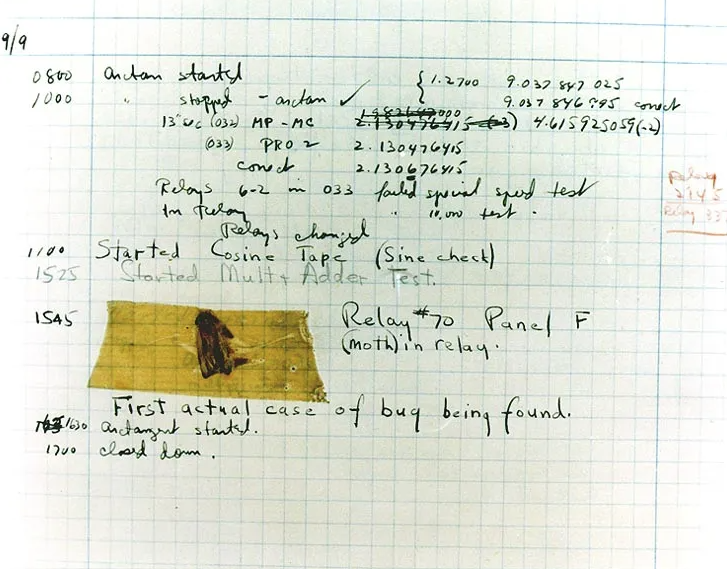 9/9
0800 arctan started { 1.2700 9.037 847 025
1000 " stopped - arctan ✓ 9.037 846 995 conect
13"sec (032) MP - MC 2.130476415 4.615925059(-2)
(033) PRO 2 2.130476415
conect 2.130676415
Relays 6-2 in 033 failed special speed test
In Relay " 10,000 test .
Relays changed
1100 Started Cosine Tape (Sine check)
1525 Started Mult+ Adder Test.
1545 Relay #70 Panel F
(moth) in relay.
First actual case of bug being found.
1630 arctangent started.
1700 closed down .
Relay
2145
Relay 337